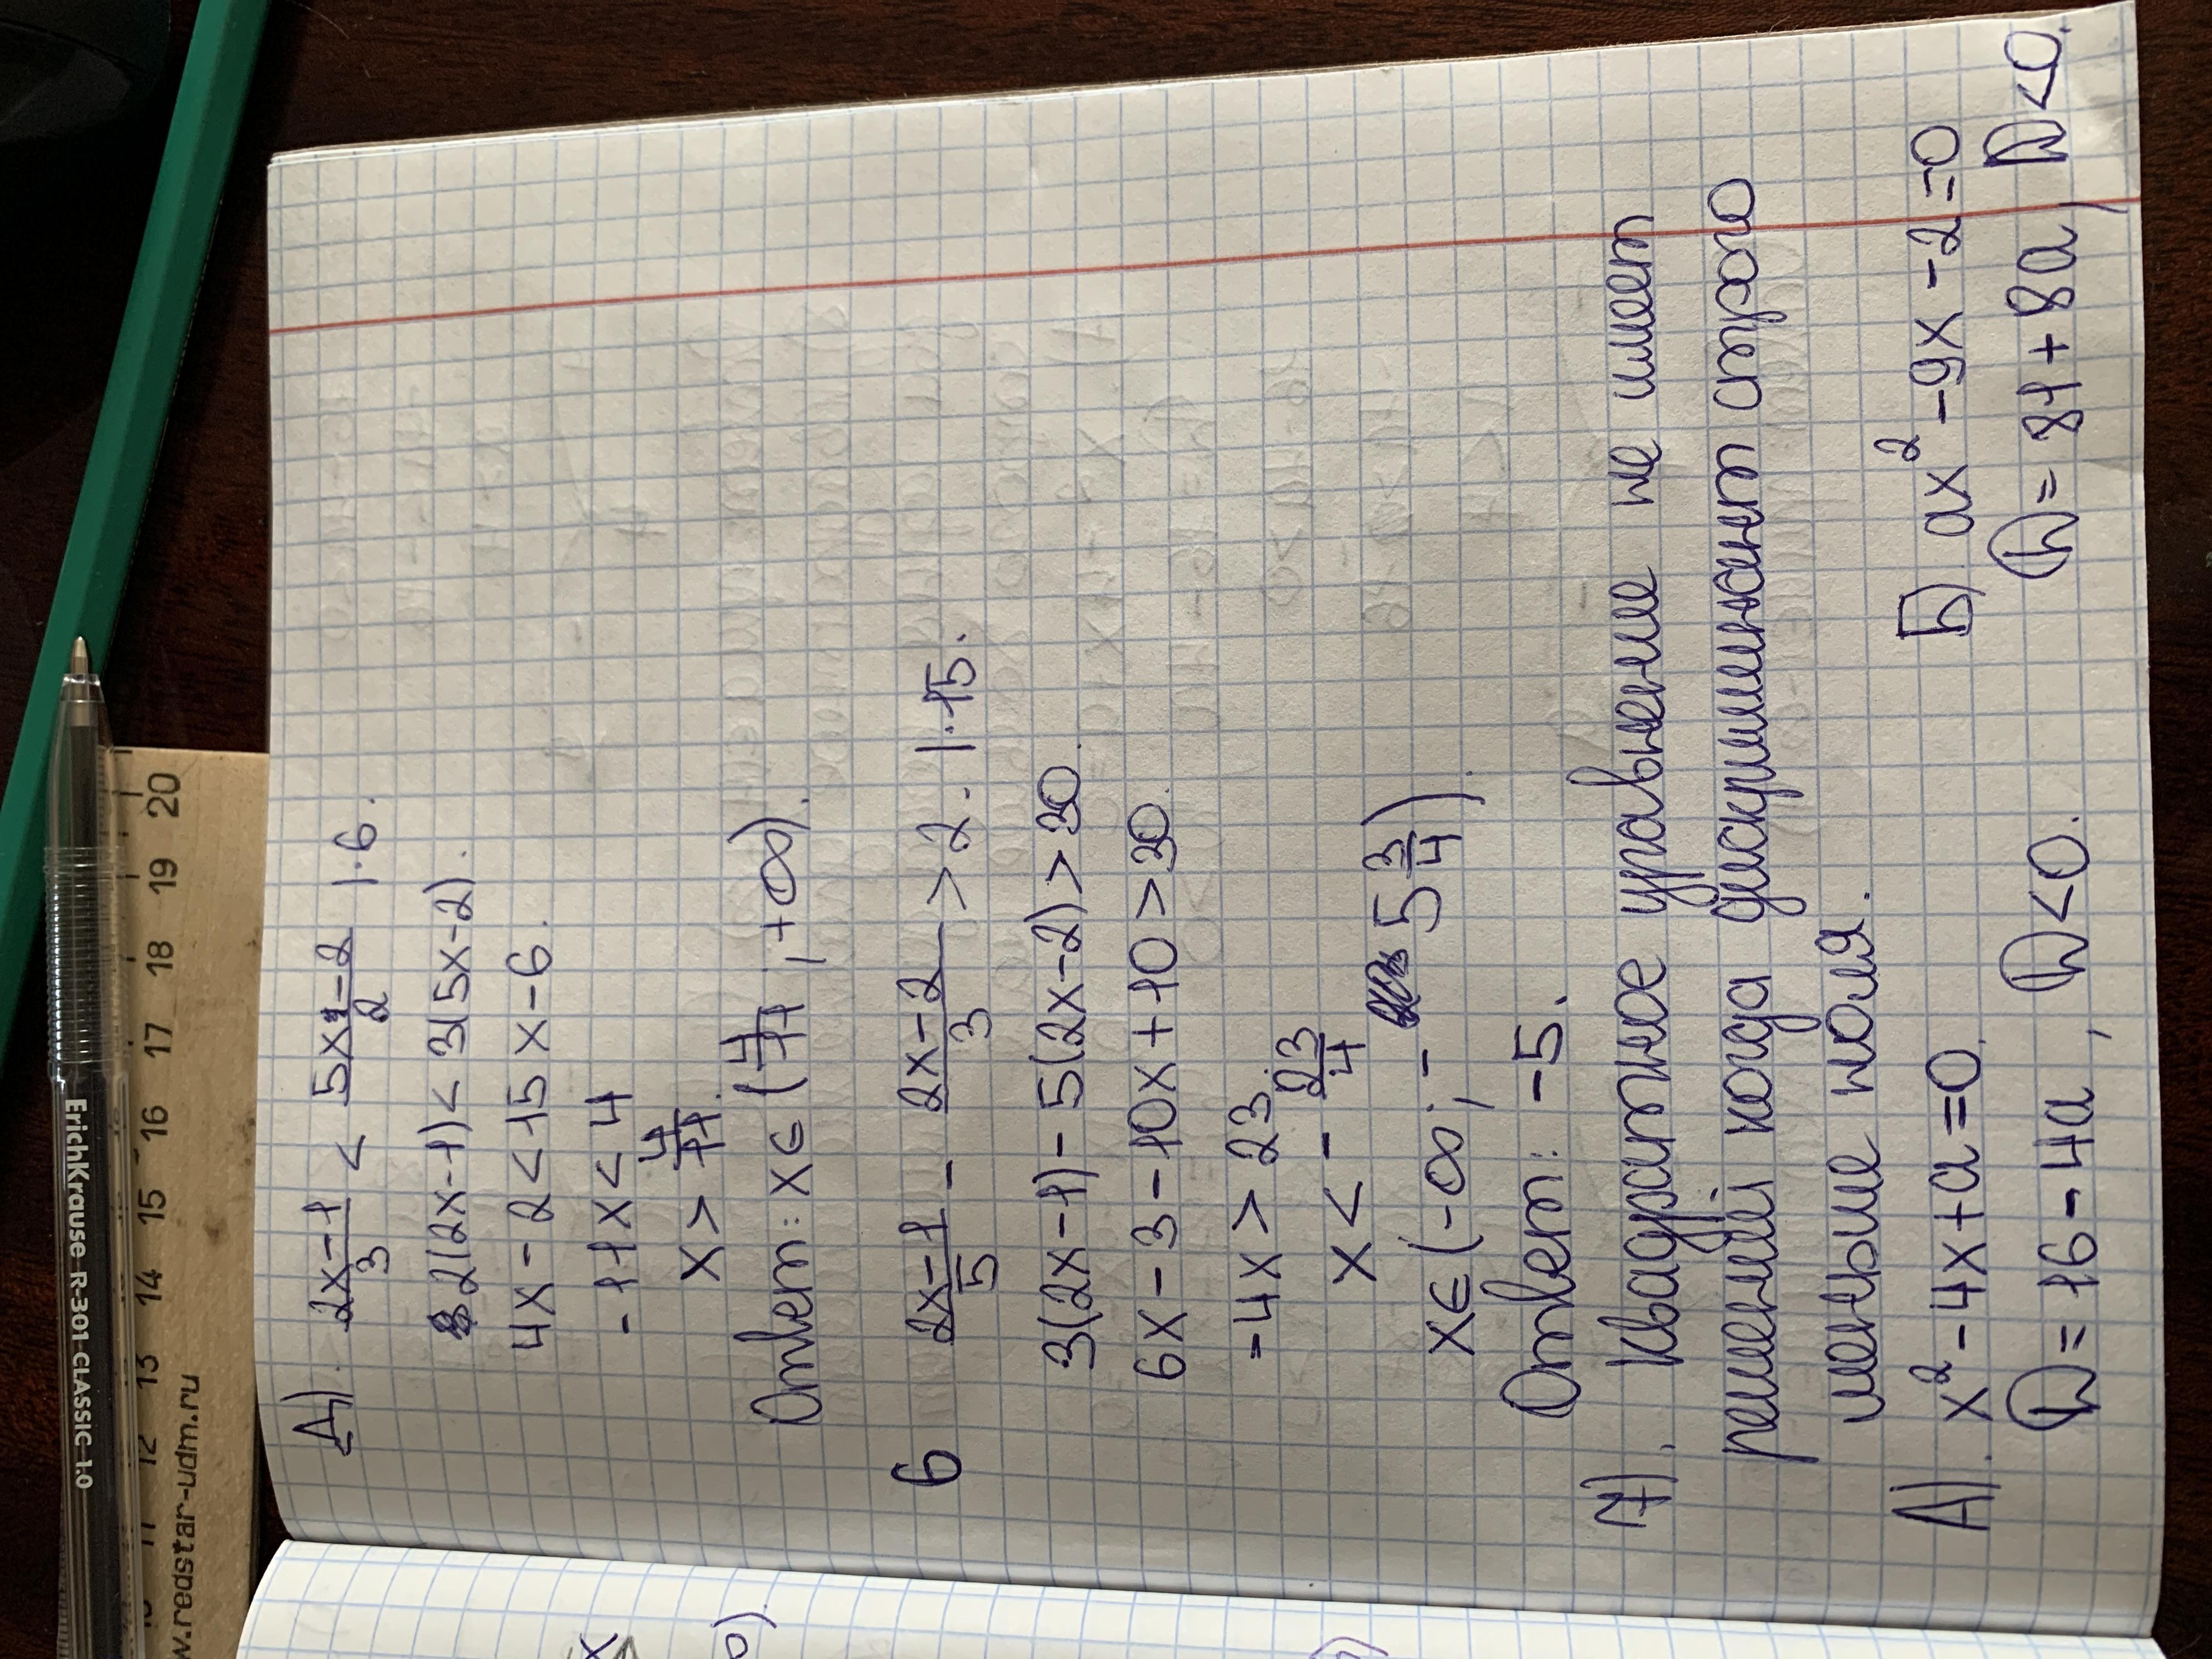 Д). (2x-1)/3 < (5x-2)/2 |·6.
2(2x-1) < 3(5x-2).
4x-2 < 15x-6.
-11x < 4
x > 4/11.
Ответ: x∈(4/11; +∞).
6 (2x-1)/5 - (2x-2)/3 > 2. |·15.
3(2x-1) - 5(2x-2) > 30.
6x-3-10x+10 > 30.
-4x > 23.
x < -23/4
x∈(-∞; -5 3/4).
Ответ: -5.
7). Квадратное уравнение не имеет
решений когда дискриминант строго
меньше ноля.
А). x²-4x+a=0. Б) ax²-9x-2=0
D=16-4a, D<0. D=81+8a, D<0.
ErichKrause R-301 CLASSIC 1.0
11 12 13 14 15 16 17 18 19 20
w.redstar-udm.ru